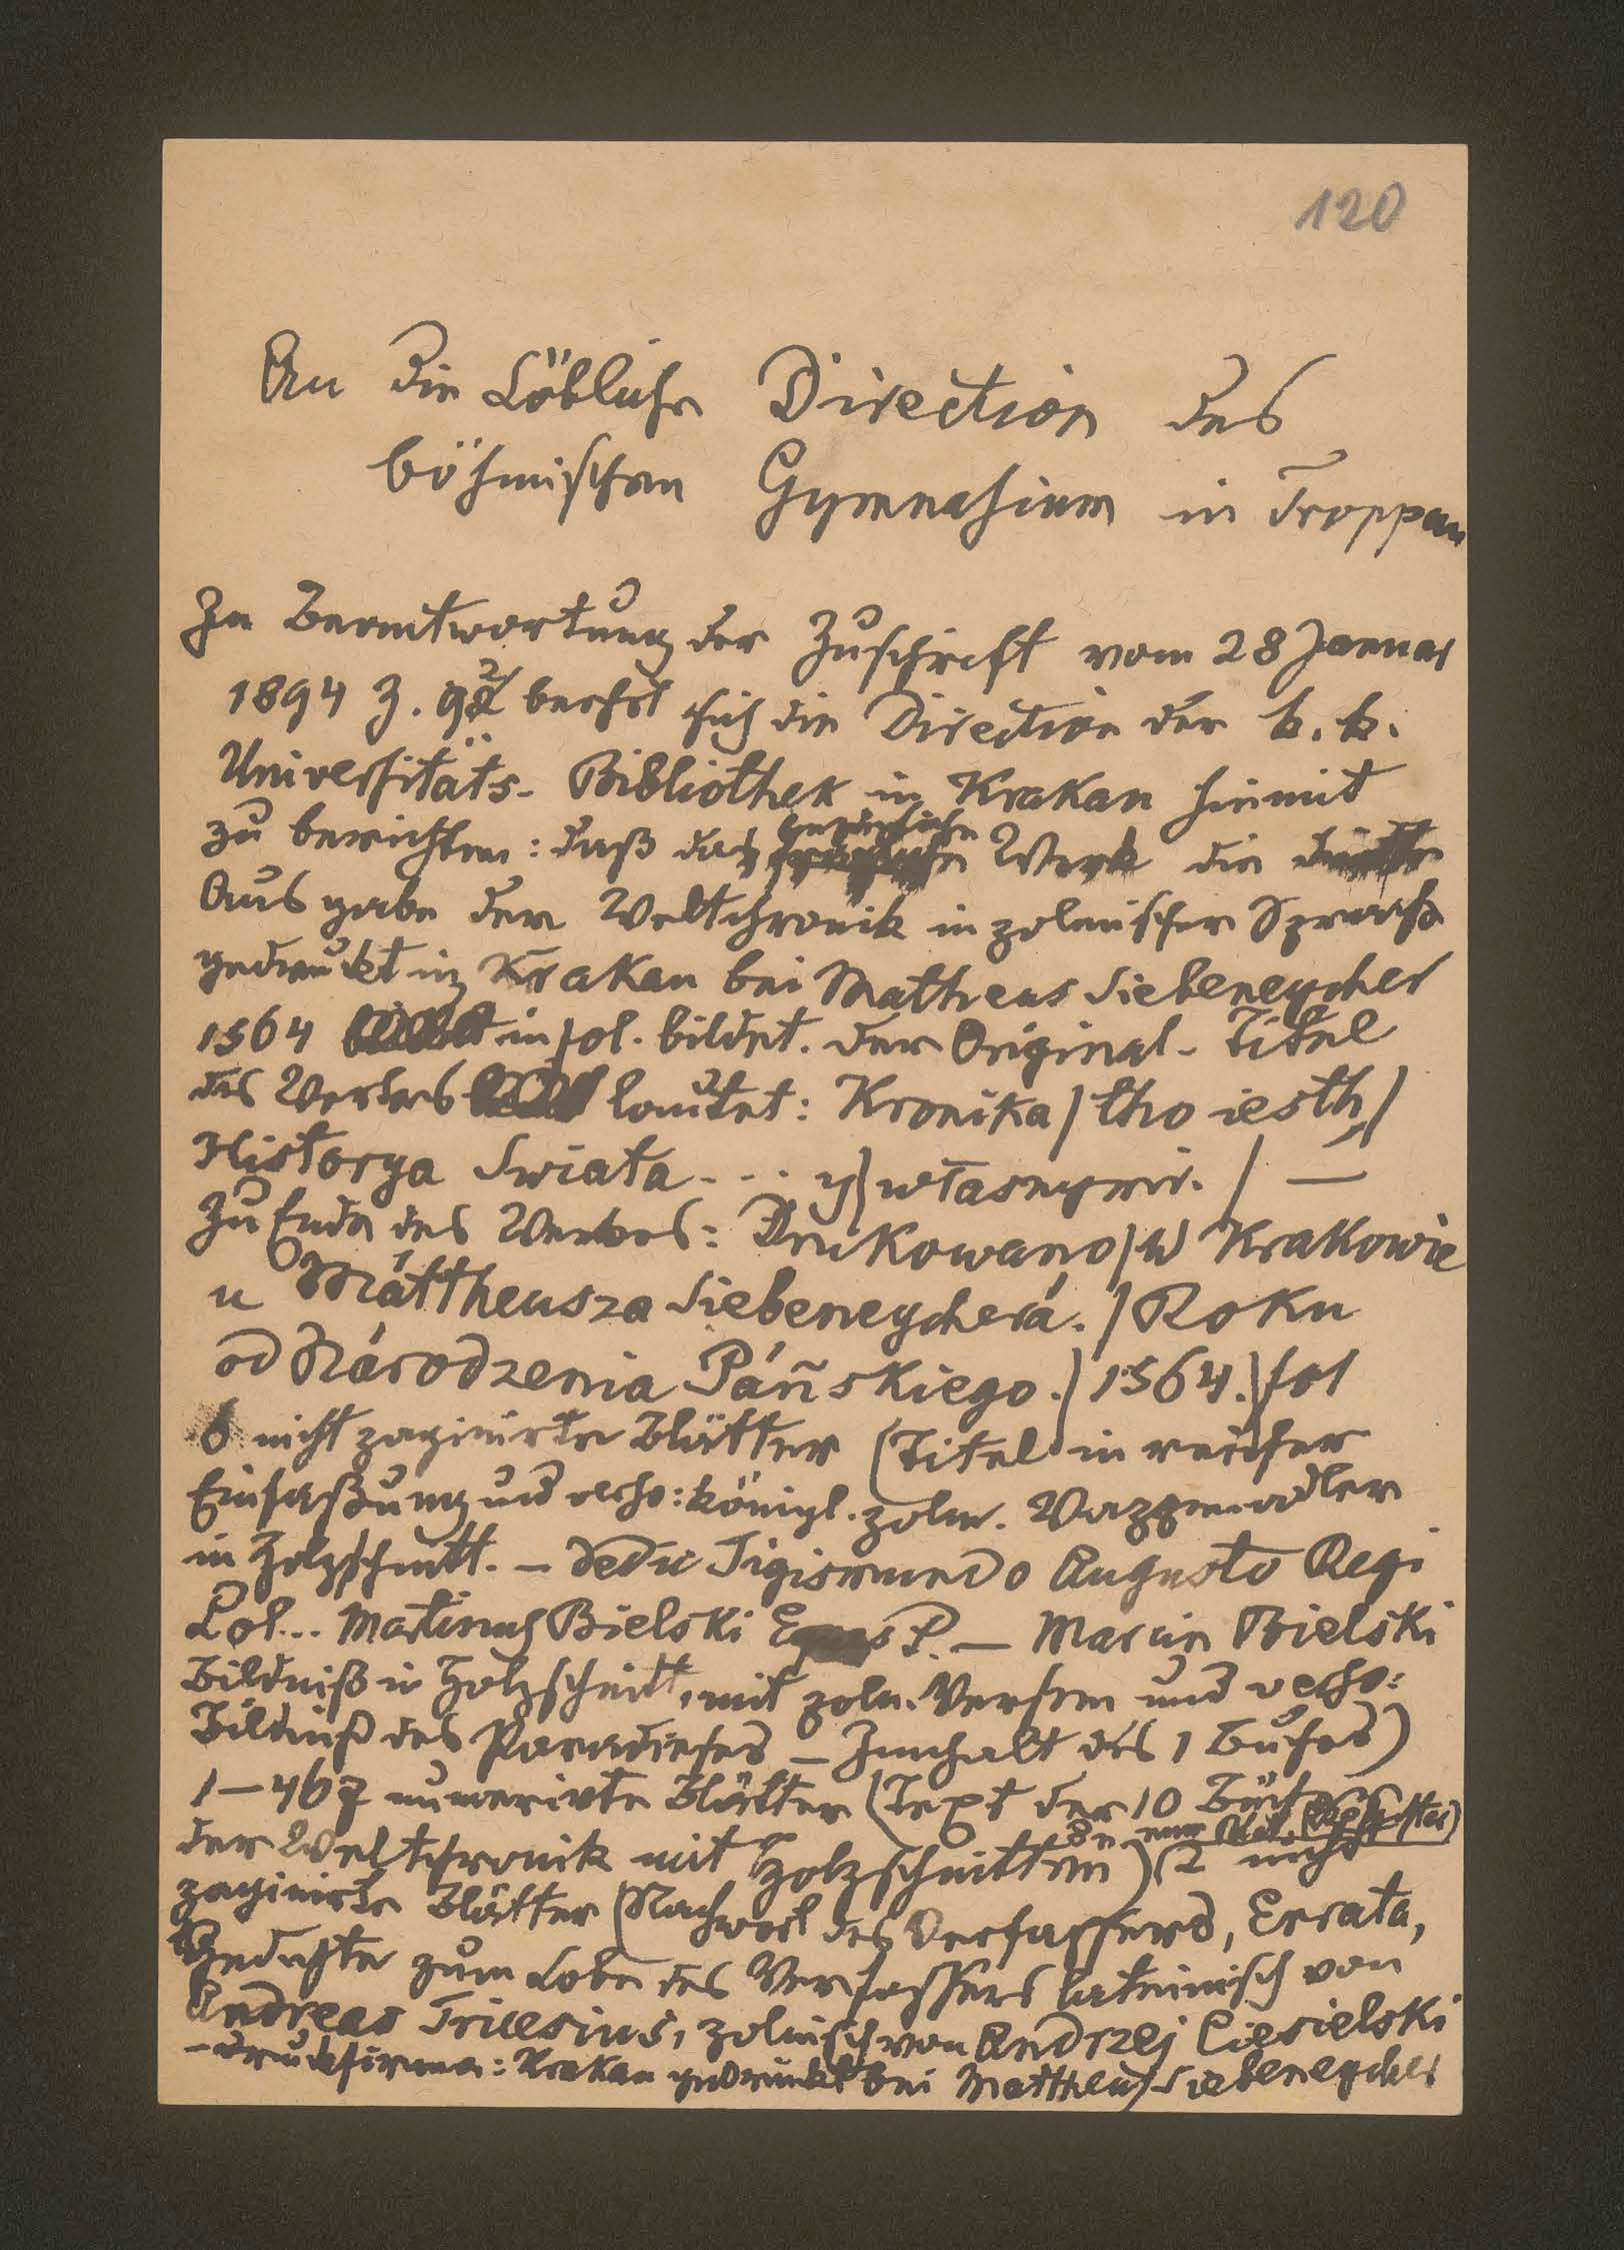 120
An die Löbliche Direction des
böhmischen Gymnasium in Troppau
In Beantwortung der Zuschrift vom 28 Januar
1894 Z. 92 beehrt sich die Direction der k. k.
Universitäts-Bibliothek in Krakau hiemit
zu berichten: daß das Werk die
Ausgabe der Weltchronik in polnischer Sprache
gedruckt in Krakau bei Mattheus Siebeneycher
1564 in fol. bildet. Der Original-Titel
des Werkes lautet: Kronika / tho iesth /
Historya Swiata . . . y / własnymi. / —
Zu Ende des Werkes: Drukowano / w Krakowie
u Máttheusza Siebeneycherá. / Roku
od Národzenia Páńskiego. / 1564. / fol
6 nicht paginirte Blätter (Titel in reicher
Einfaßung und verso: königl. poln. Wappenadler
in Holzschnitt. — Dedic Sigismundo Augusto Regi
Pol... Martinus Bielski Eques P. — Marcin Bielski
Bildniß in Holzschnitt, mit poln. Versen und verso:
Bildniß des Paradieses — Innhalt des 1 Buches)
1—467 numerirte Blätter (Text der 10 Bücher
der Weltchronik mit Holzschnitten) (2 nicht
paginirte Blätter (Nachwort des Verfassers, Errata,
Gedichte zum Lobe des Verfassers lateinisch von
Andreas Tricesius, polnisch von Andrzej Ciesielski
– Druckfirma: Krakau gedruckt bei Mattheus Siebeneycher